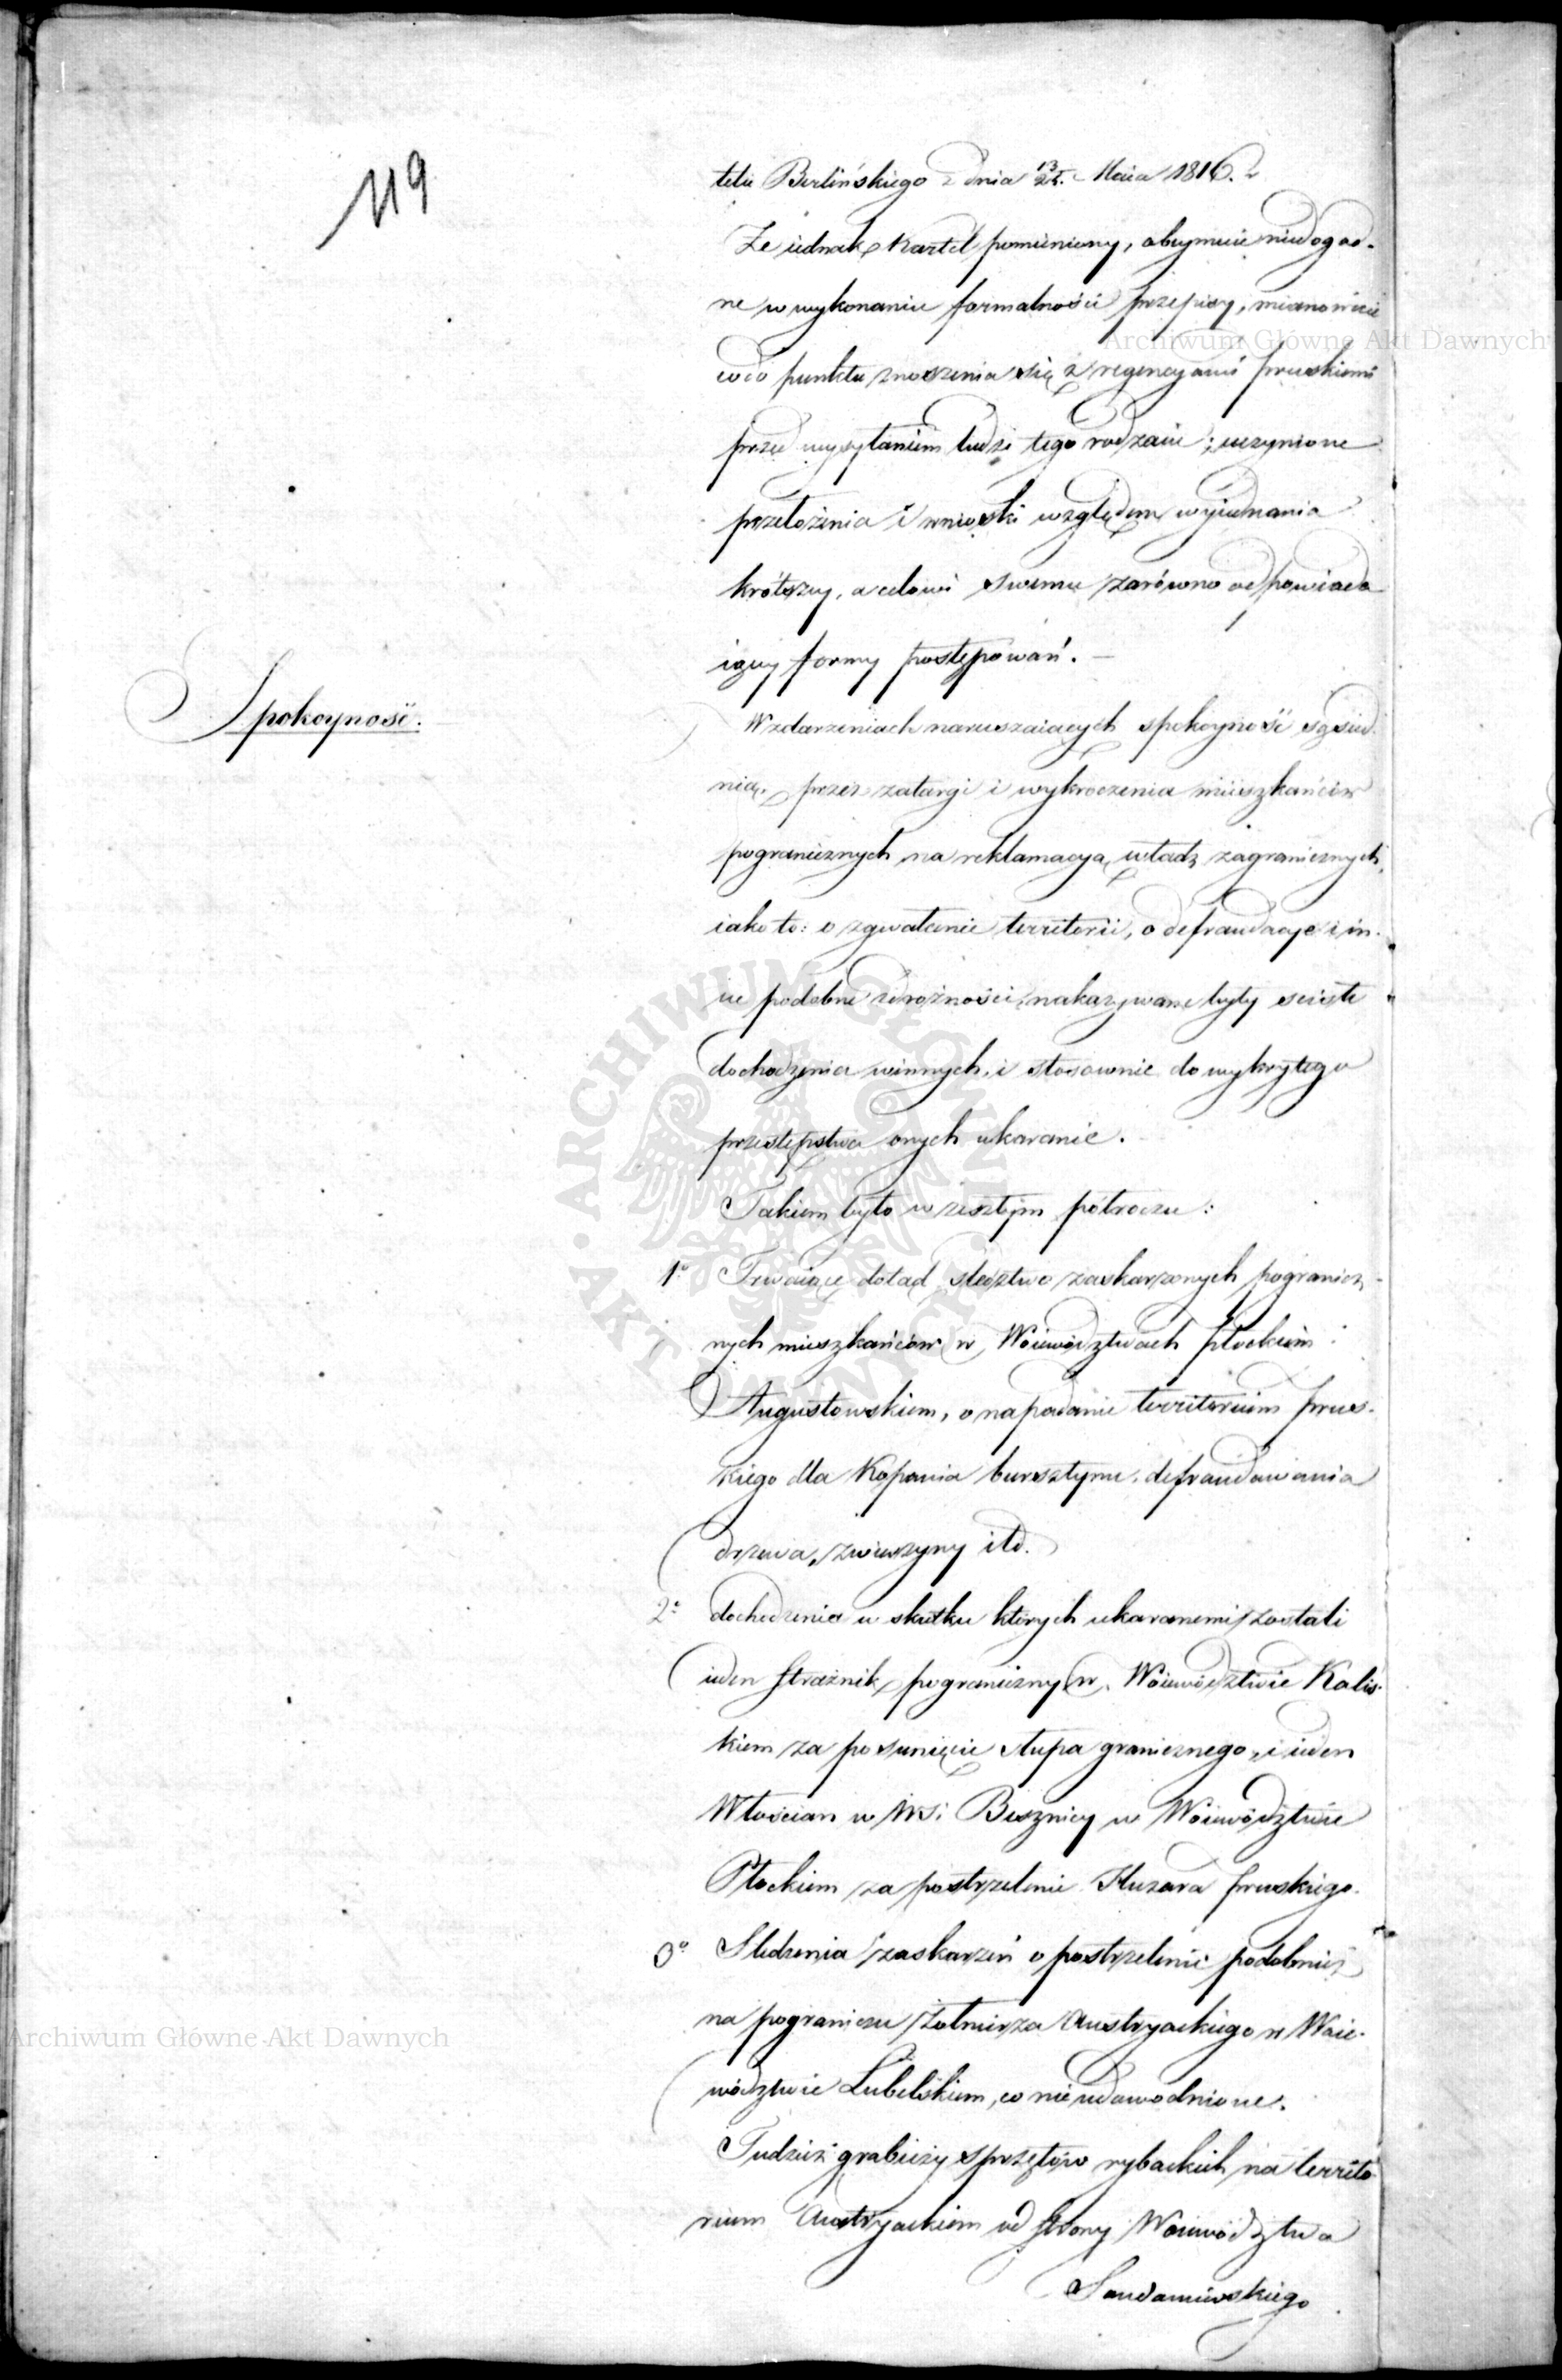 119
telu Berlińskiego z dnia 13/25. Maia 1816. r
Że iednak Kartel pomieniony, obeymuie niedogod-
ne w wykonaniu formalności przepisy, mianowicie
co do punktu znoszenia się z regencyami pruskiemi
przed wysyłaniem ludzi tego rodzaiu; uczynione
przełożenia i wnioski względem wyiednania
krótszey, a celowi swemu zarówno odpowiada
iącey formy postępowań. —
Spokoyność.
W zdarzeniach naruszaiących spokoyność sąsied-
nią, przez zatargi i wykroczenia mieszkańców
pogranicznych na reklamacyą władz zagranicznych,
iako to: o zgwałcenie territorii, o defraudacye i in-
ne podobne zdrożności, nakazywane były ścisłe
dochodzenia winnych, i stosownie do wykrytego
przestępstwa onych ukaranie.
Takiem było w zeszłym półroczu:
1º Trwaiące dotąd śledztwo zaskarżonych pogranicz-
nych mieszkańców w Woiewództwach Płockiem i
Augustowskiem, o napadanie territorium prus-
kiego dla kopania bursztynu, defraudowania
drzewa, zwierzyny itd.
2º dochodzenia w skutku których ukaranemi zostali
ieden strażnik pograniczny w Woiewództwie Kalis-
kiem za posunięcie słupa granicznego, i ieden
Włościan w Wsi Bieżnicy w Woiewództwie
Płockiem za postrzelenie Huzara pruskiego.
3º Śledzenia zaskarżeń o postrzelenie podobnież
na pograniczu żołnierza Austryackiego w Woie-
wództwie Lubelskiem, co nieudowodnione.
Tudzież grabieży sprzętów rybackich na territo
rium Austryackiem od strony Woiewództwa
Sandomirskiego
Archiwum Główne Akt Dawnych
Archiwum Główne Akt Dawnych
ARCHIWUM GŁÓWNE AKT DAWNYCH